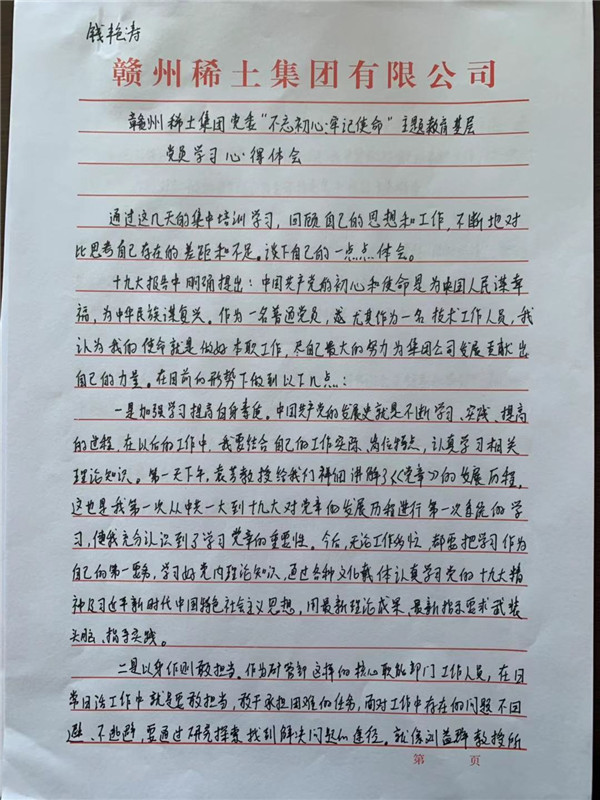 钱艳涛
赣州稀土集团有限公司
赣州稀土集团党委“不忘初心、牢记使命”主题教育基层
党员学习心得体会
通过这几天的集中培训学习，回顾自己的思想和工作，不断地对
比思考自己存在的差距和不足。谈下自己的一点点体会。
十九大报告中明确提出：中国共产党的初心和使命是为中国人民谋幸
福，为中华民族谋复兴。作为一名普通党员，尤其作为一名技术工作人员，我
认为我的使命就是做好本职工作，尽自己最大的努力为集团公司发展贡献出
自己的力量。在目前的形势下做到以下几点：
一是加强学习提高自身素质。中国共产党的发展史就是不断学习、实践、提高
的过程，在以后的工作中，我要结合自己的工作实际、岗位特点，认真学习相关
理论知识。第一天下午，袁芳教授给我们详细讲解了《党章》的发展历程，
这也是我第一次从中共一大到十九大对党章的发展历程进行第一次系统的学
习，使我充分认识到了学习党章的重要性。今后，无论工作多忙，都要把学习作为
自己的第一要务，学习好党内理论知识，通过各种文化载体认真学习党的十九大精
神及习近平新时代中国特色社会主义思想，用最新理论成果、最新指示要求武装
头脑、指导实践。
二是以身作则敢担当。作为矿管部这样的核心职能部门工作人员，在日
常日治工作中就是要敢担当，敢于承担困难的任务，面对工作中存在的问题不回
避、不逃避，要通过研究探索找到解决问题的途径。就像刘益群教授所
第 页